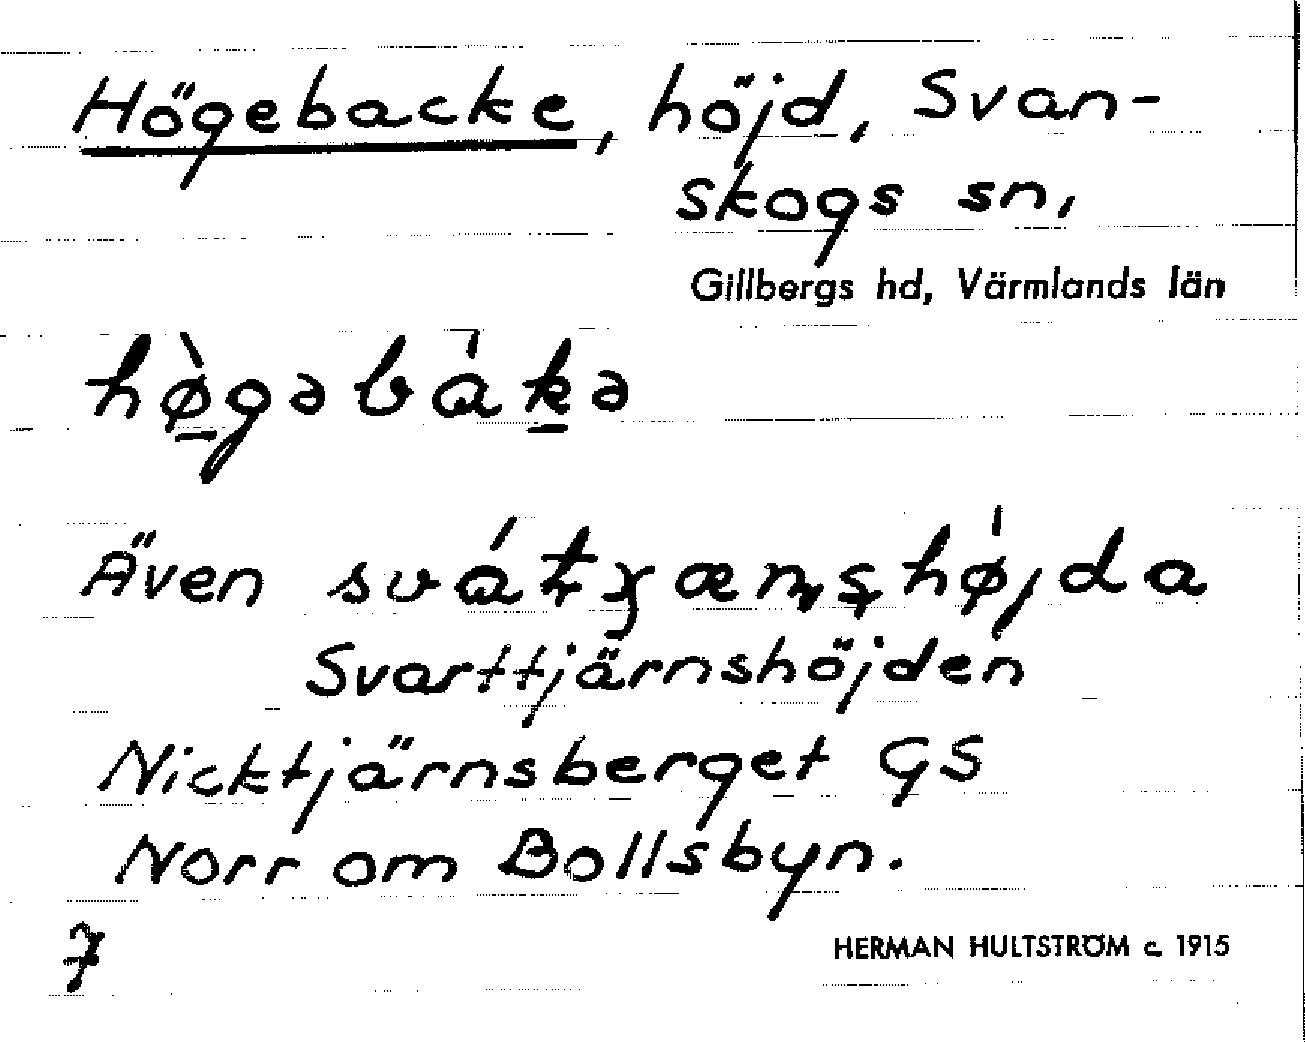 Högebacke, höjd, Svan-
skogs sn,
Gillbergs hd, Värmlands län
hø̀gəbàkə
Även
Svarttjärnshöjden
Nicktjärnsberget GS
Norr om Bollsbyn.
7
HERMAN HULTSTRÖM c. 1915